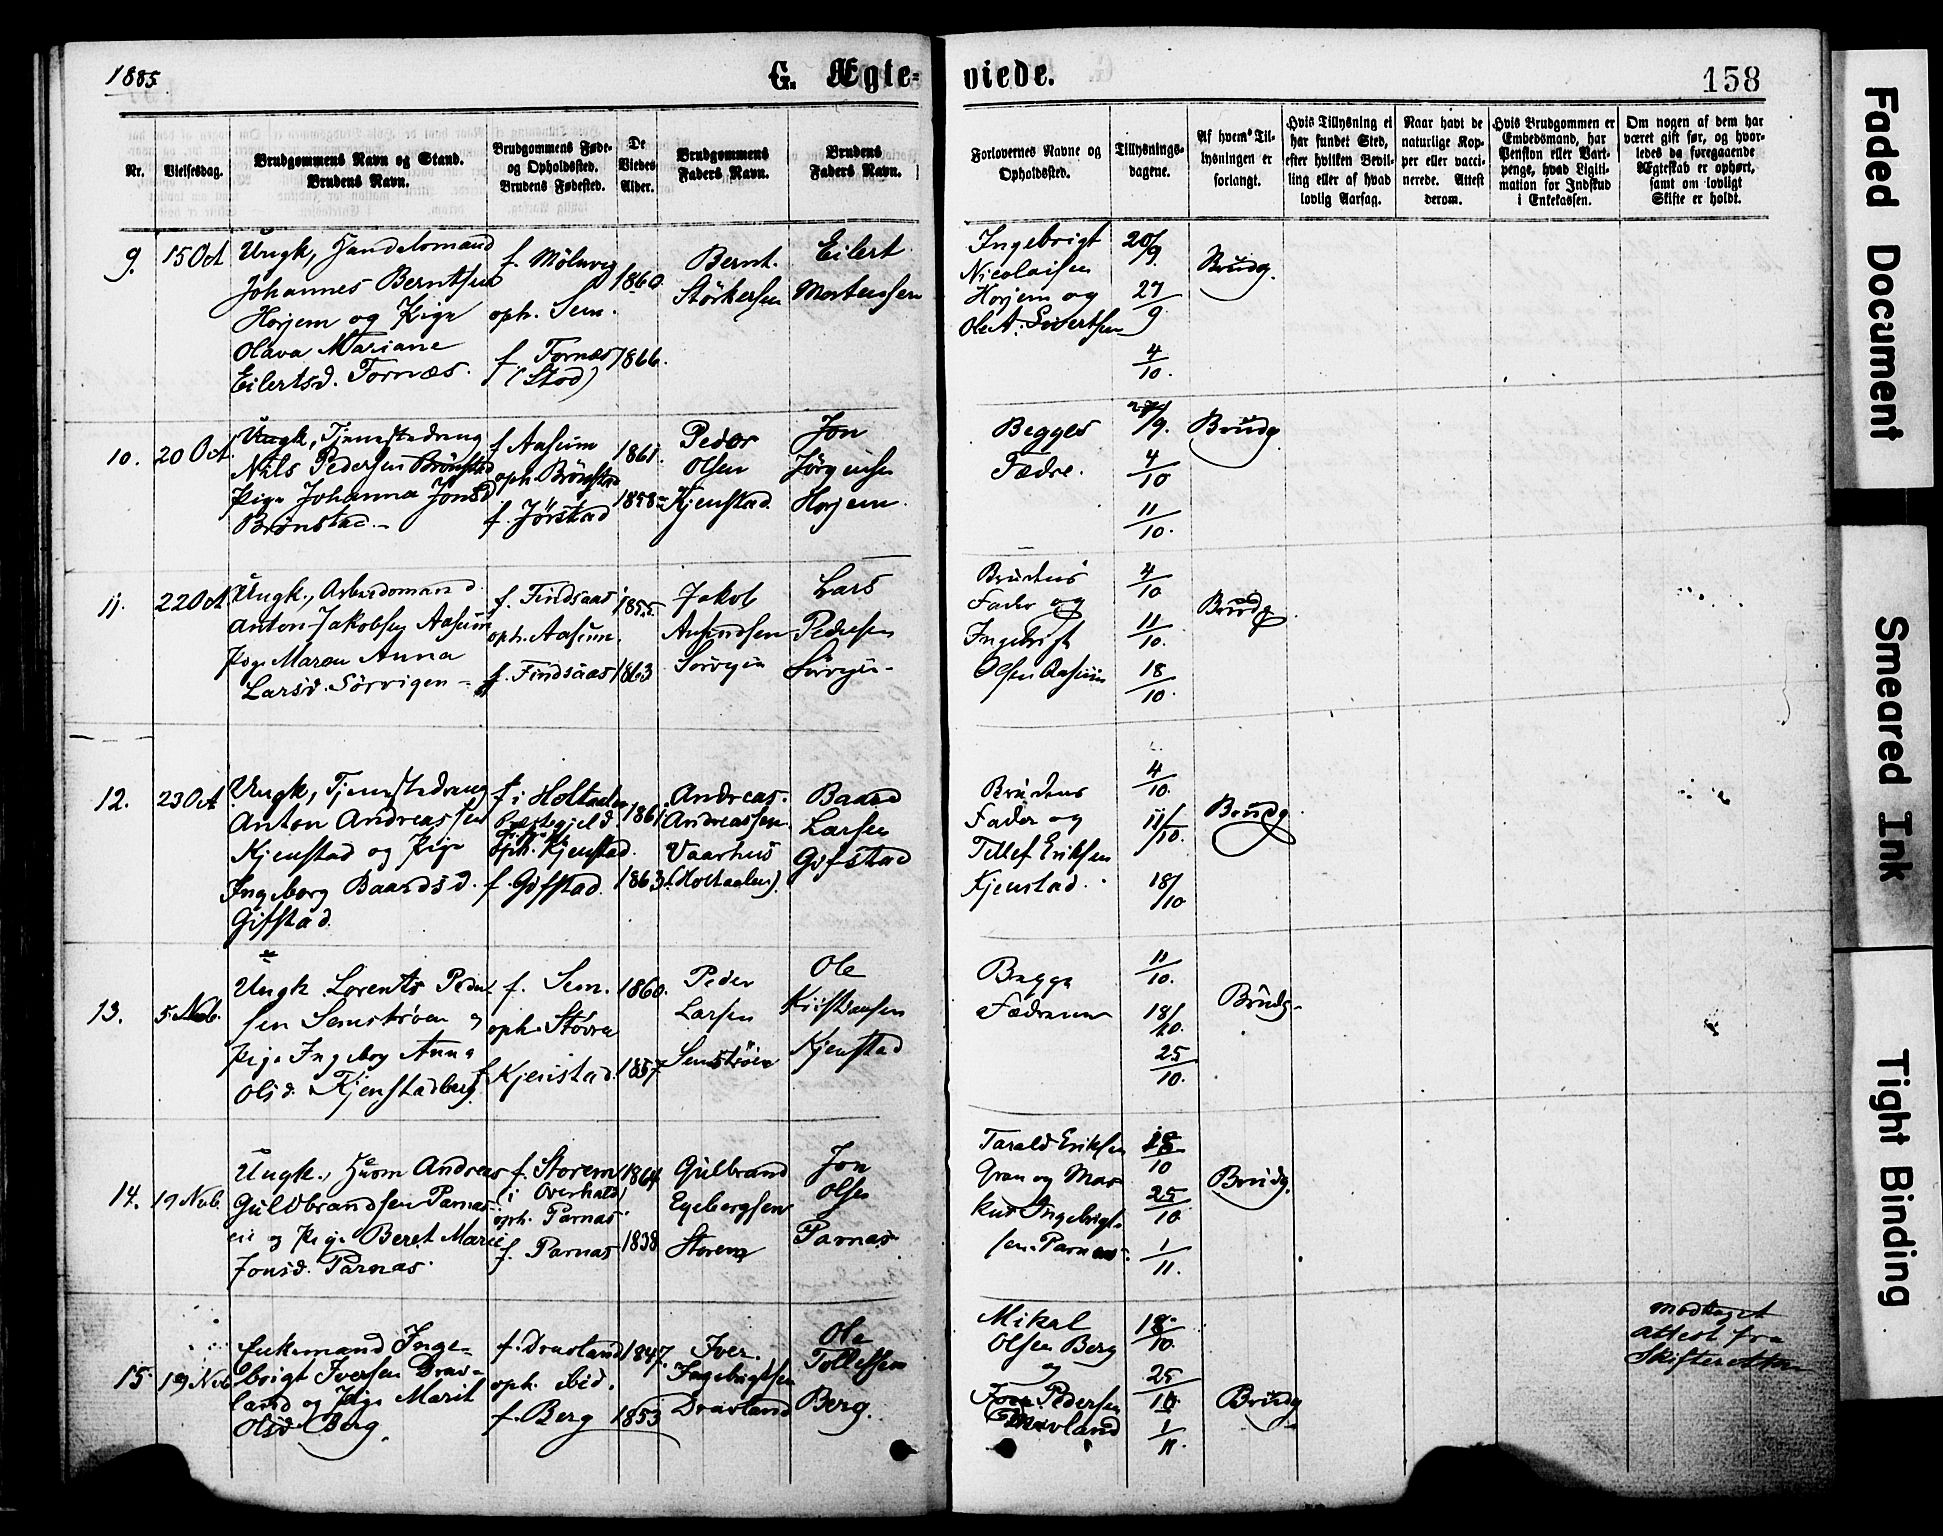 1885
G. Ægte-
viede.
158
Nr.
Vielsesdag.
Brudgommens Navn og Stand.
Brudens Navn.
Brudgommens Føde-
og Opholdssted.
Brudens Fødested.
De
Viedes
Alder.
Brudgommens
Faders Navn.
Brudens
Faders Navn.
Forlovernes Navne og
Opholdsted.
Tillysnings-
dagene.
Af hvem Til-
lysningen er
forlangt.
Hvis Tillysning ei
har fundet Sted,
efter hvilken Bevil-
ling eller af hvad
lovlig Aarsag.
Naar havt de
naturlige Kop-
per eller vacci-
nerede. Attest
derom.
Hvis Brudgommen er
Embedsmand, har
Pension eller Vart-
penge, hvad Ligiti-
mation for Indskud
i Enkekassen.
Om nogen af dem har
været gift før, og hvor-
ledes da foregaaende
Ægteskab er ophørt,
samt om lovligt
Skifte er holdt.
9.
15 Oct
Ungk, Handelsmand
Johannes Berntsen
Horjem og Pige
Olava Mariane
Eilertsd. Tornæs.
f. Mölnvig
oph. Sem.
f. Tornæs
(Stod)
1860.
1866.
Bernt.
Störkersen
Eilert
Mortensen
Ingebrigt
Nicolaisen
Horjem og
Ole A. Sivertsen
20/9.
27/9
4/10.
Brudg.
10.
20 Oct.
Ungk, Tjenestedreng
Nils Pedersen Brönstad
Pige Johanna Jonsd
Brönstad.-
f Aasum
oph. Brönstad
f. Jörstad
1861.
1858
Peder
Olsen
Kjenstad.
Jon
Jörgensen
Horjem.
Begges
Fædre.
27/9.
4/10
11/10.
Brudg
11.
22 Oct
Ungk., Arbeidsmand
Anton Jakobsen Aasum
Pige Maren Anna
Larsd. Sörvigen -
f. Findsaas
oph. Aasum.
f. Findsaas
1855.
1863
Jakob
Amundsen
Sörvigen
Lars
Pedersen
Sörvigen-
Brudens
Fader og
Ingebrigt
Olsen Aasum
4/10
11/10.
18/10.
Brudg
12.
23 Oct
Ungk, Tjenestedreng
Anton Andreassen
Kjenstad og Pige
Ingeborg Baardsd.
Gifstad.
f. i Holtaalen
Præstegjeld.
oph. Kjenstad.
f. Gifstad.
1861
1863
Andreas.
Andreassen
Vaarhus
(Holtaalen).
Baard
Larsen
Gifstad
Brudens
Fader og
Tellef Eriksen
Kjenstad.
4/10.
11/10.
18/10
Brudg.
13.
5. Nob.
Ungk. Lorents Peder-
sen Semströen og
Pige Ingeborg Anna
Olsd. Kjenstadberg.
f. Sem.
oph. Stövra
f. Kjenstad.
1860.
1857
Peder
Larsen
Semströen
Ole
Kristiansen
Kjenstad
Begge
Fædrene
11/10.
18/10.
25/10.
Brudg-
14.
19 Nob.
Ungk., Husm Andreas
Guldbrandsen Parnas-
eie og Pige Beret Marie
Jonsd. Parnas.
f. Storem
(i Overhald)
oph. Parnas.
f. Parnas
1864
1838
Gulbrand
Egebergsen
Storem
Jon
Olsen
Parnas
Tarald Eriksen
Gran og Mar
kus Ingebrigt-
sen Parnas.
18/10
25/10
1/11.
Brudg.
15.
19 Nob
Enkemand Inge-
brigt Iversen Drav-
land og Pige Marit
Olsd Berg.
f. Dravland
oph. ibid.
f. Berg
1847.
1853
Iver.
Ingebrigtsen
Dravland
Ole
Tollefsen
Berg.
Mikal
Olsen Berg
og
Jon Pedersen
Dravland
18/10.
25/10
1/11.
Brudg
Modtaget
attest fra
Skifteretten
Faded Document
Smeared Ink
Tight Binding